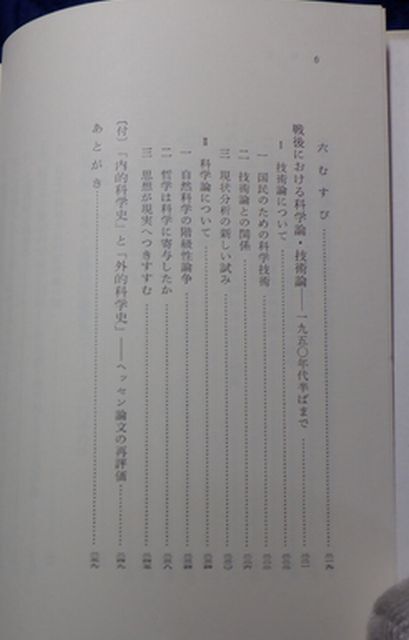 6
六 むすび
戦後における科学論・技術論――一九五〇年代半ばまで
Ⅰ 技術論について
一 国民のための科学技術
二 技術論との関係
三 現状分析の新しい試み
Ⅱ 科学論について
一 自然科学の階級性論争
二 哲学は科学に寄与したか
三 思想が現実へつきすすむ
〔付〕「内的科学史」と「外的科学史」――ヘッセン論文の再評価
あとがき